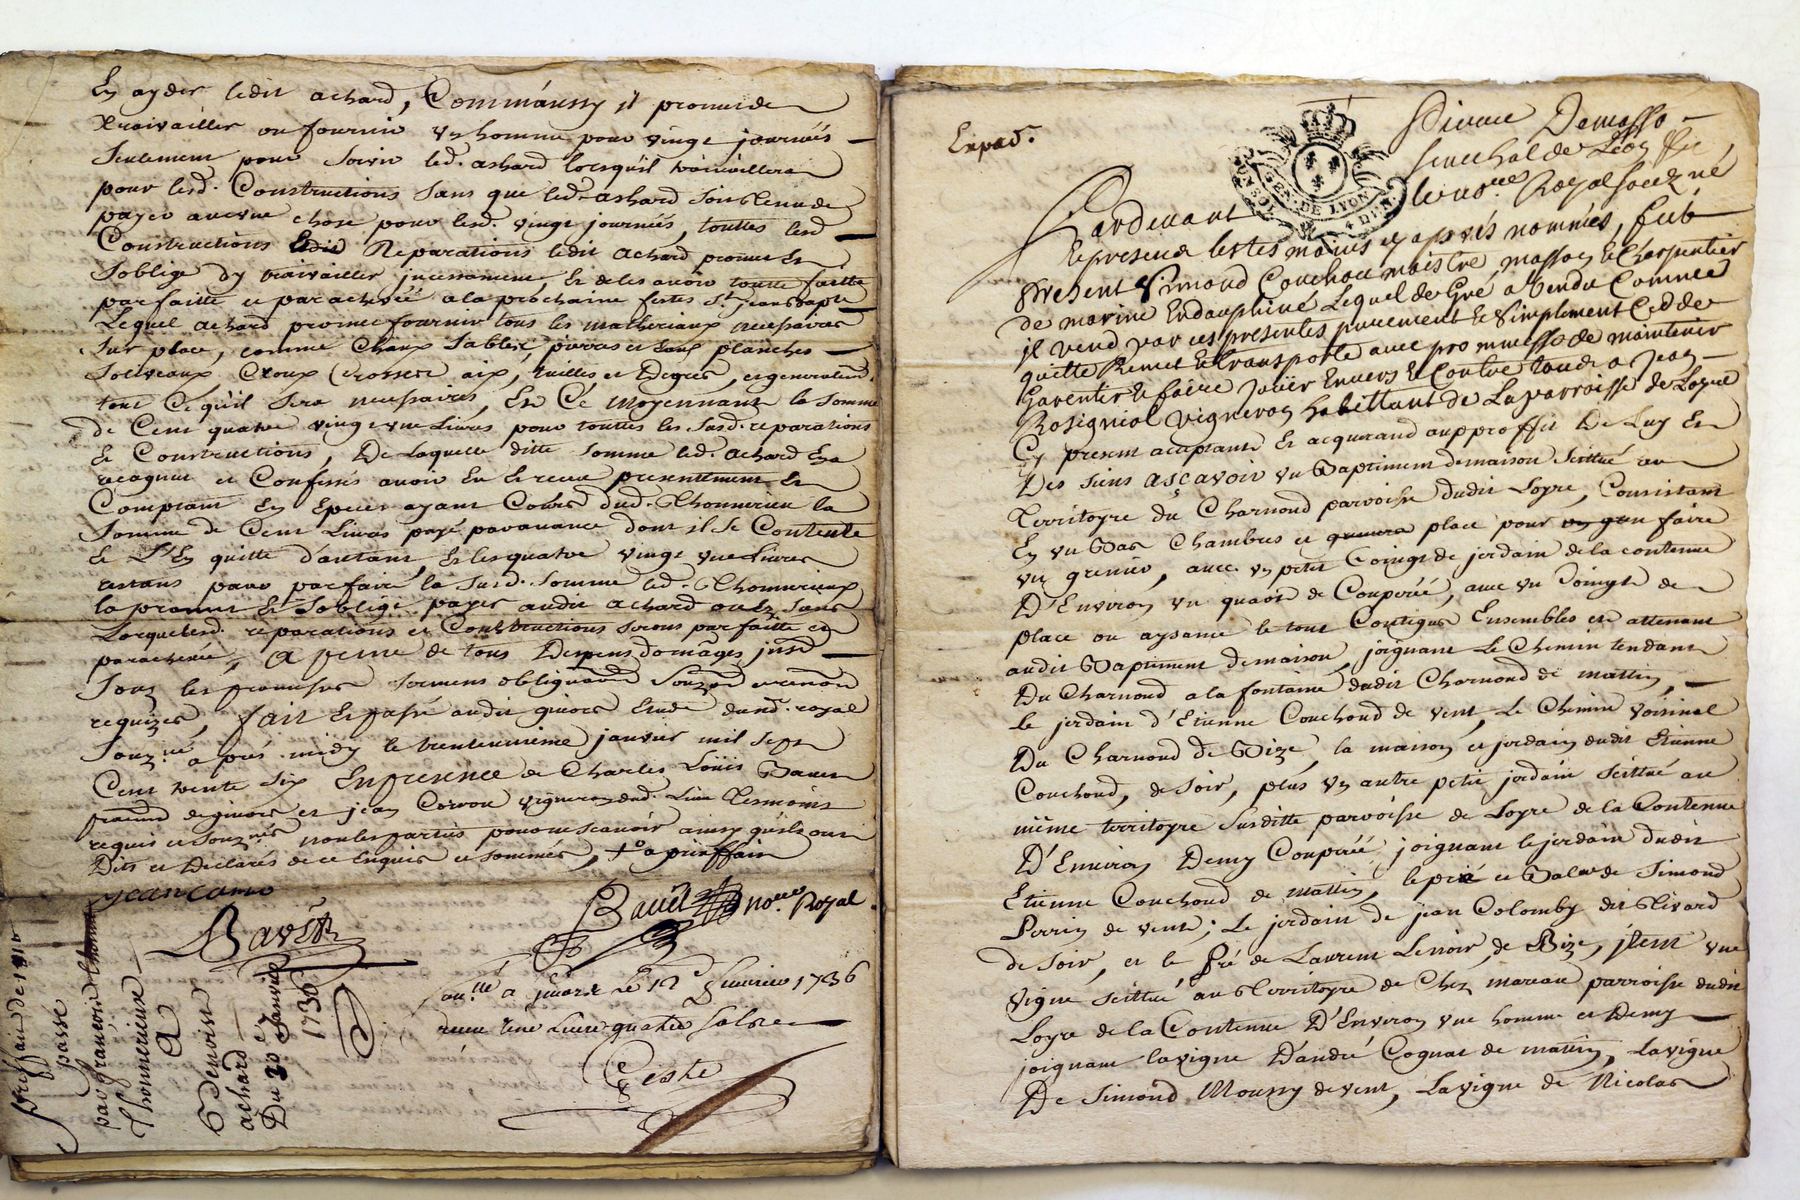 En ayder ledit achard, Commaussy il promet de
travailler ou fournir un homme pour vingt journéés
seulement pour servir led. achard lorsqu'il travaillera
pour lesd. Constructions sans que led achard soit tenu de
payer aucune chose pour lesd. vingt journéés, touttes lesd
Constructions Reparations ledit achard promet Et
s'oblige dy travailler jncessament, Et de les avoir toutte faitte
parfaitte et parachevéé a la prochaine festes St jean bapte
Lequel achard promet fournir tous les matheriaux necessaires
sur place, comme Chaux sable, pierres et planches
soliveaux aix, tuilles et Degrés, et generalemt
tout Ce qu'il sera necessaires, Et Ce moyennant la somme
de Cent quatre vingt une Livres pour touttes les susd. reparations
& Constructions, De laquelle ditte somme led. achard En a
recognut et Confessés avoir Eu & receu presentement Et
Comptant En Especes ayant Cours dud. Thonnerieu la
somme de Cent Livres payé par avance dont il se Contente
& L'En quitte d'autant, Et les quatre vingt une Livres
restans pour parfaire la susd. somme led. Thonnerieux
la promet Et s'oblige payer audit achard
Lorsque lesd. reparations et Constructions seront parfaitte et
parachevéé, a peine de tous Despens domages jnsd
sous les promesses sermens obligaon
requizes, fait Et passé audit givors Etude dud. no. royal
souz.né a prés midy le trentenieme janvier mil sept
Cent trente six En presence de Charles Loüis
de givors et jean vigneron dud. Lieu tesmoins
requis et souz.nés non les parties pour ne scavoir ainsy qu'ils ont
Dits et Declarés de ce Enquis et sommés, prix fait
jean
Bavet
Bavet no.re Royal
Con.llé a givors le 12e fevrier 1736
receu une Livre quatre sols
Geste
Prix fait de 181 tt
passé
par françois thonn
Thonnerieux
A
Benoist
achard
Du 30e Janvier
1736
Exped.
GEN. DE LYON
Pierre Demasso
senechal de Leon
le no.re Royal souz.né
Pardevant
& presence les tesmoins cy aprés nommées, fut
present Simond Couchou maistre masson & Charpentier
de morine En dauphiné Lequel de Gré a Vendu Comme
jl vend par ces presentes purement & simplement Cedde
quitte Remet & transporte avec promesse de maintenir
Garentir & faire joüir Envers & Contre touts a jean
Rosigniol vigneron habittant de La parroisse de Loyre
Cy present acceptant Et acquerand aupproffit De Luy Et
Des siens asçavoir un Baptiment de maison scittué au
territoyre du Charnond parroisse dudit Loyre, Consistant
En un Bas Chambres et place pour faire
un grenier, avec un petit Coingt de jerdain de la contenue
D'Environ un quart de Coupéé, avec un Coingt de
place ou aysance le tout Contigus Ensembles Et attenant
audit Baptiment de maison, joignant Le Chemin tendant
Du Charnond a la fontaine dudit Charnond de mattin,
le jerdain d'Etienne Couchoud de vent, Le Chemin voisinal
Du Charnond de Bize, la maison et jerdain dudit Etienne
Couchoud, de soir, plus un autre petit jerdain scittué au
même territoyre susditte parroisse de Loyre de la Contenue
D'Environ Demy Coupéé, joignant le jerdain dudit
Etienne Couchoud de mattin, le pré et de Simond
Perrin de vent; Le jerdain de jean Colomby dit Rivard
de soir, et le Pré de Laurent Lenoir, de Bize, jtem une
vigne scittué au Territoyre de Chez mareau parroisse dudit
Loyre de la Contenue D'Environ une homme et Demy
joignant la vigne D'andré Cognat de mattin, La vigne
De Simond Moussy de vent, La vigne de Nicolas